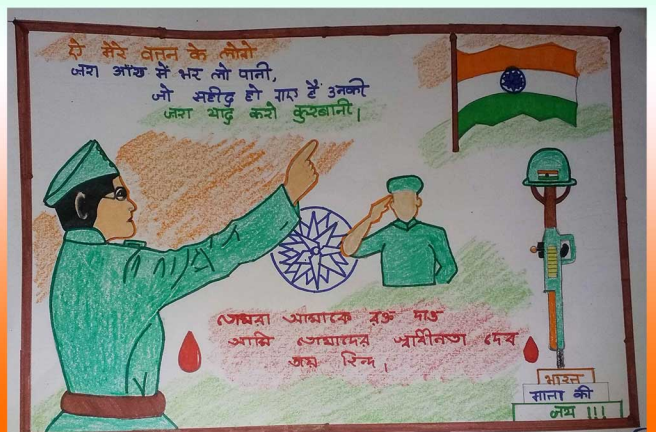 ऐ मेरे वतन के लोगो
जरा आँख में भर लो पानी,
जो सहीद हो गए हैं उनकी
जरा याद करो कुरबानी।
তোমরা আমাকে রক্ত দাও
আমি তোমাদের স্বাধীনতা দেব
জয় হিন্দ।
भारत
माता की
जय !!!